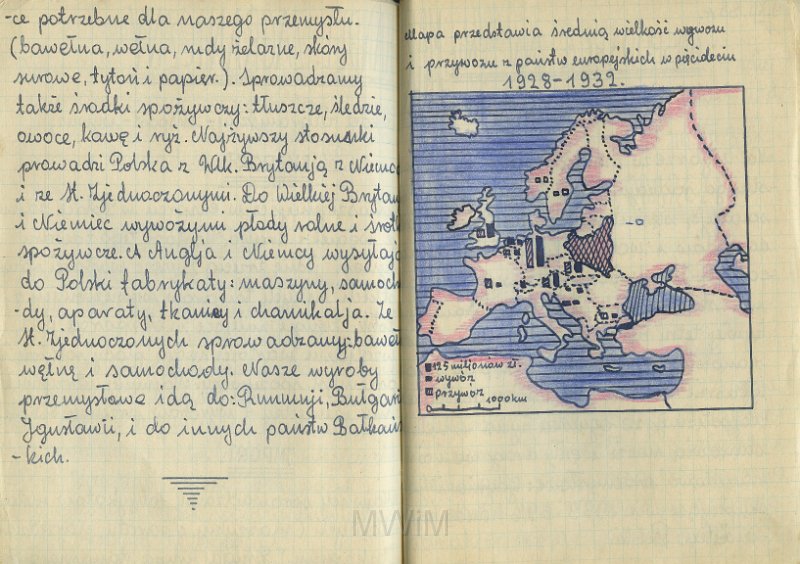 -ce potrzebne dla naszego przemysłu.
(bawełna, wełna, rudy żelazne, skóry
surowe, tytoń i papier.). Sprowadzamy
także środki spożywczy: tłuszcze, śledzie,
owoce, kawę i ryż. Najżywszy stosunki
prowadzi Polska z Wlk. Brytanją z Niemca
i ze St. Zjednoczonymi. Do Wielkiej Brytan
i Niemiec wywozimy płody rolne i środ
spożywcze. A Anglja i Niemcy wysyłają
do Polski fabrykaty: maszyny, samoch
-dy, aparaty, tkaniny i chemikalja. Ze
St. Zjednoczonych sprowadzamy: baweł
wełnę i samochody. Nasze wyroby
przemysłowe idą do: Rumunji, Bułgar
Jgusławii, i do innych państw Bałkań
-kich.
Mapa przedstawia średnią wielkość wywozu
i przywozu z państw europejskich w pięcioleciu
1928-1932.
125 miljonów zł.
wywóz
przywóz
0 1000km
MWiM